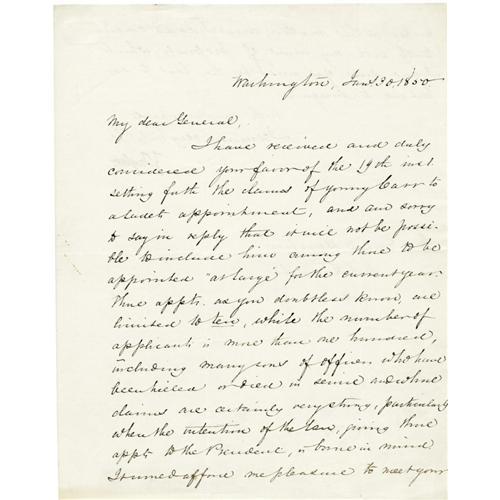 Washington, Jany 30, 1850
My dear General,
I have received and duly
considered your favor of the 19th inst.
setting forth the claims of young Carr to
a Cadet appointment, and am sorry
to say in reply that it will not be possi-
ble to include him among those to be
appointed "at large" for the current year.
These appts. as you doubtless know, are
limited to ten, while the number of
applicants is more than one hundred,
including many sons of officers who have
been killed or died in service and whose
claims are certainly very strong, particularly
when the intention of the law, giving these
appts to the President, is borne in mind
It would afford me pleasure to meet your